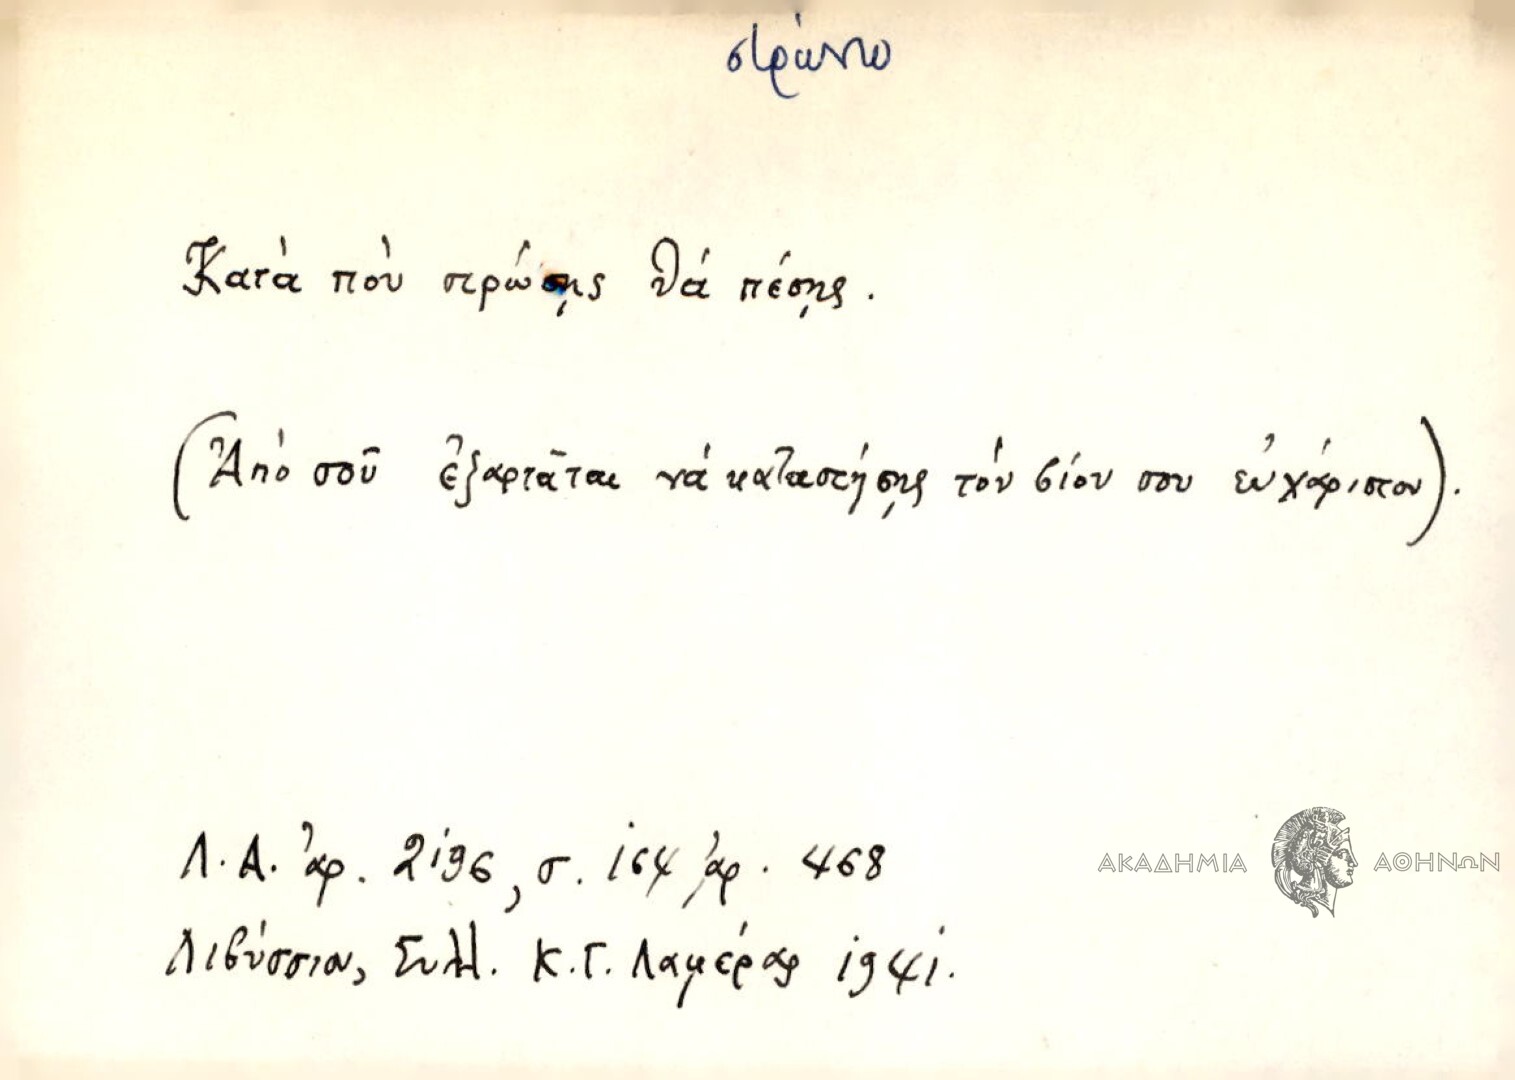 στρώνω
Κατὰ ποὺ στρώσῃς θά πέσῃς.
(Ἀπὸ σοῦ ἐξαρτᾶται νά καταστήσῃς τὸν βίον σου εὐχάριστον).
Λ.Α. ἀρ. 2196, σ. 164 ἀρ. 468
ΑΚΑΔΗΜΙΑ ΑΘΗΝΩΝ
Λιβύσσιον, Συλλ. Κ.Γ. 1941.